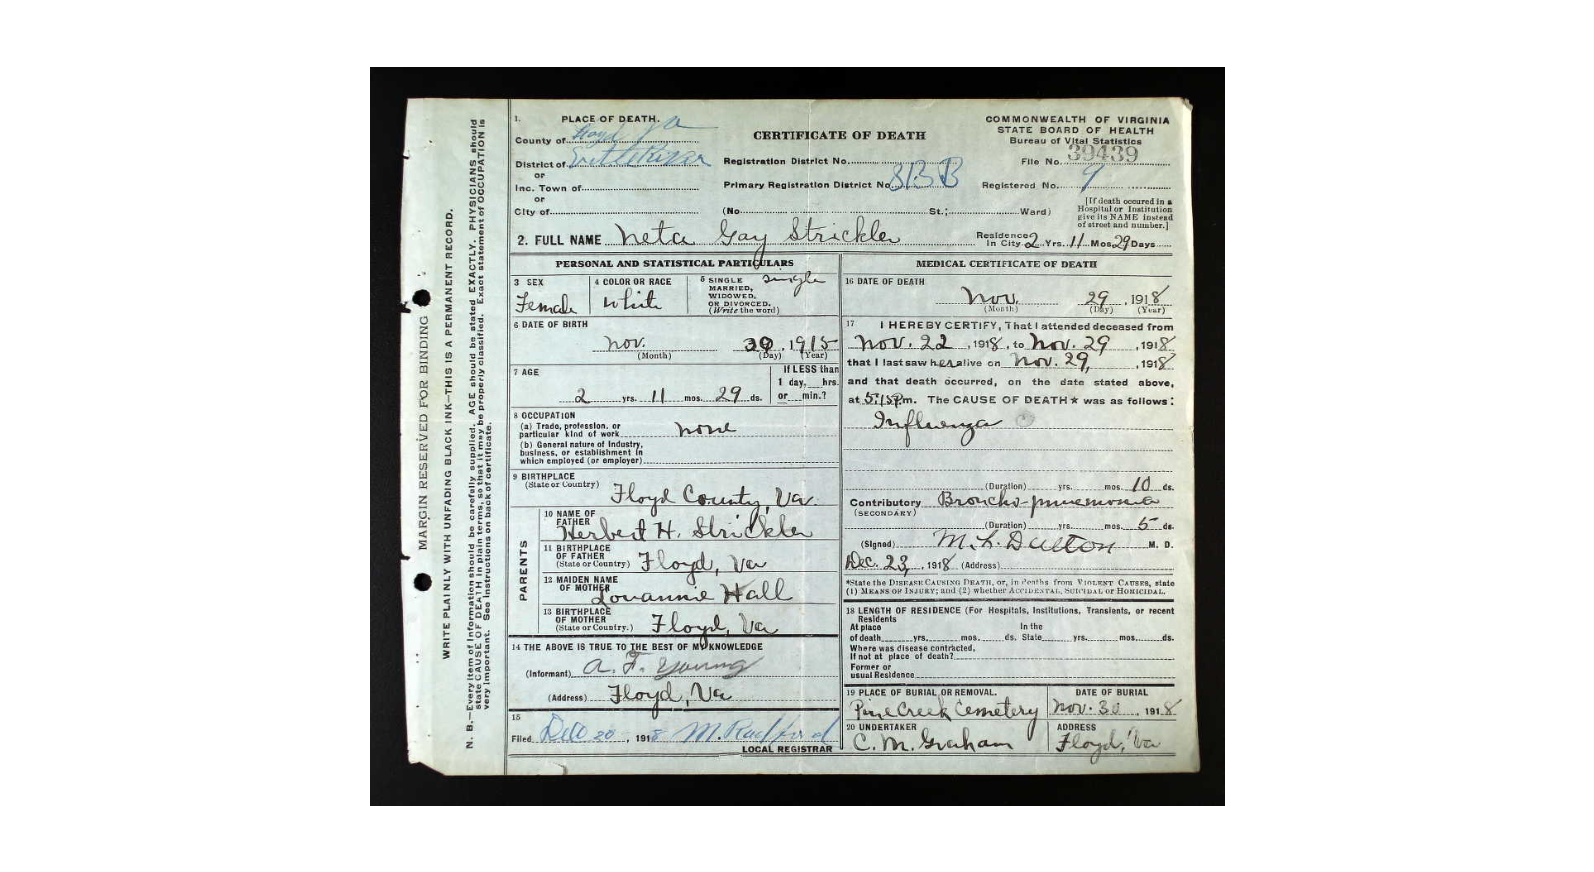 MARGIN RESERVED FOR BINDING
WRITE PLAINLY WITH UNFADING BLACK INK—THIS IS A PERMANENT RECORD.
N. B.—Every item of information should be carefully supplied. AGE should be stated EXACTLY. PHYSICIANS should
state CAUSE OF DEATH in plain terms, so that it may be properly classified. Exact statement of OCCUPATION is
very important. See instructions on back of certificate.
1. PLACE OF DEATH.
County of Floyd Va
District of Little River
or
Inc. Town of
or
City of
CERTIFICATE OF DEATH
Registration District No.
Primary Registration District No. 313 B
(No. St.; Ward)
COMMONWEALTH OF VIRGINIA
STATE BOARD OF HEALTH
Bureau of Vital Statistics
File No. 39439
Registered No. 9
[If death occured in a
Hospital or Institution
give its NAME instead
of street and number.]
2. FULL NAME Neta Gay Strickler
Residence In City 2 Yrs. 11 Mos. 29 Days
PERSONAL AND STATISTICAL PARTICULARS
3 SEX
Female
4 COLOR OR RACE
White
5 SINGLE
MARRIED,
WIDOWED,
OR DIVORCED.
(Write the word)
single
6 DATE OF BIRTH
Nov. 30, 1915
(Month) (Day) (Year)
7 AGE
2 yrs. 11 mos. 29 ds.
If LESS than
1 day, hrs.
or min.?
8 OCCUPATION
(a) Trade, profession, or
particular kind of work none
(b) General nature of Industry,
business, or establishment in
which employed (or employer)
9 BIRTHPLACE
(State or Country) Floyd County, Va.
PARENTS
10 NAME OF
FATHER Herbert H. Strickler
11 BIRTHPLACE
OF FATHER
(State or Country) Floyd, Va
12 MAIDEN NAME
OF MOTHER Lovannie Hall
13 BIRTHPLACE
OF MOTHER
(State or Country.) Floyd, Va
14 THE ABOVE IS TRUE TO THE BEST OF MY KNOWLEDGE
(Informant) A. F. Young
(Address) Floyd, Va
15
Filed Dec 20, 1918 M. Radford
LOCAL REGISTRAR
MEDICAL CERTIFICATE OF DEATH
16 DATE OF DEATH
Nov. 29, 1918
(Month) (Day) (Year)
17 I HEREBY CERTIFY, That I attended deceased from
Nov. 22, 1918, to Nov. 29, 1918
that I last saw her alive on Nov. 29, 1918
and that death occurred, on the date stated above,
at 5:15 P.m. The CAUSE OF DEATH* was as follows:
Influenza
(Duration) yrs. mos. 10 ds.
Contributory Broncho-pneumonia
(SECONDARY)
(Duration) yrs. mos. 5 ds.
(Signed) M. L. Dalton M. D.
Dec. 23, 1918 (Address)
*State the DISEASE CAUSING DEATH, or, in deaths from VIOLENT CAUSES, state
(1) MEANS OF INJURY; and (2) whether ACCIDENTAL, SUICIDAL or HOMICIDAL.
18 LENGTH OF RESIDENCE (For Hospitals, Institutions, Transients, or recent
Residents
At place In the
of death yrs. mos. ds. State yrs. mos. ds.
Where was disease contracted,
If not at place of death?
Former or
usual Residence
19 PLACE OF BURIAL OR REMOVAL.
Pine Creek Cemetery
DATE OF BURIAL
Nov. 30, 1918
20 UNDERTAKER
C. M. Graham
ADDRESS
Floyd, Va